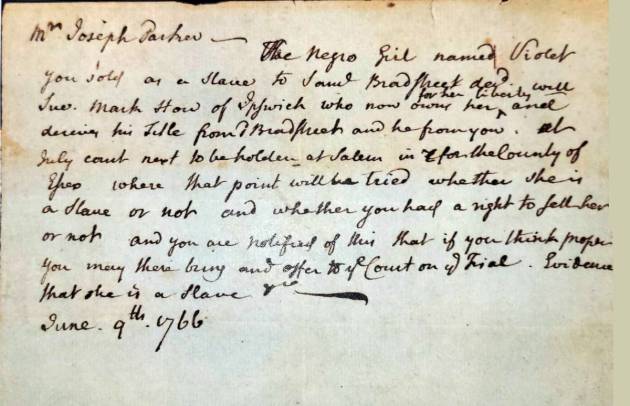 Mr. Joseph Parker — The Negro Girl named Violet
you sold as a Slave to Saml Bradstreet decd. will
Sue. Mark Stow of Ipswich who now owns her, for her Liberty and
derives his Title from sd Bradstreet and he from you. at
July court next to be holden at Salem in & for the County of
Essex where that point will be tried whether she is
a Slave or not and whether you had a right to sell her
or not and you are notified of this that if you think proper
you may there bring and offer to ye Court on ye Trial. Evidence
that she is a Slave
June. 9th. 1766